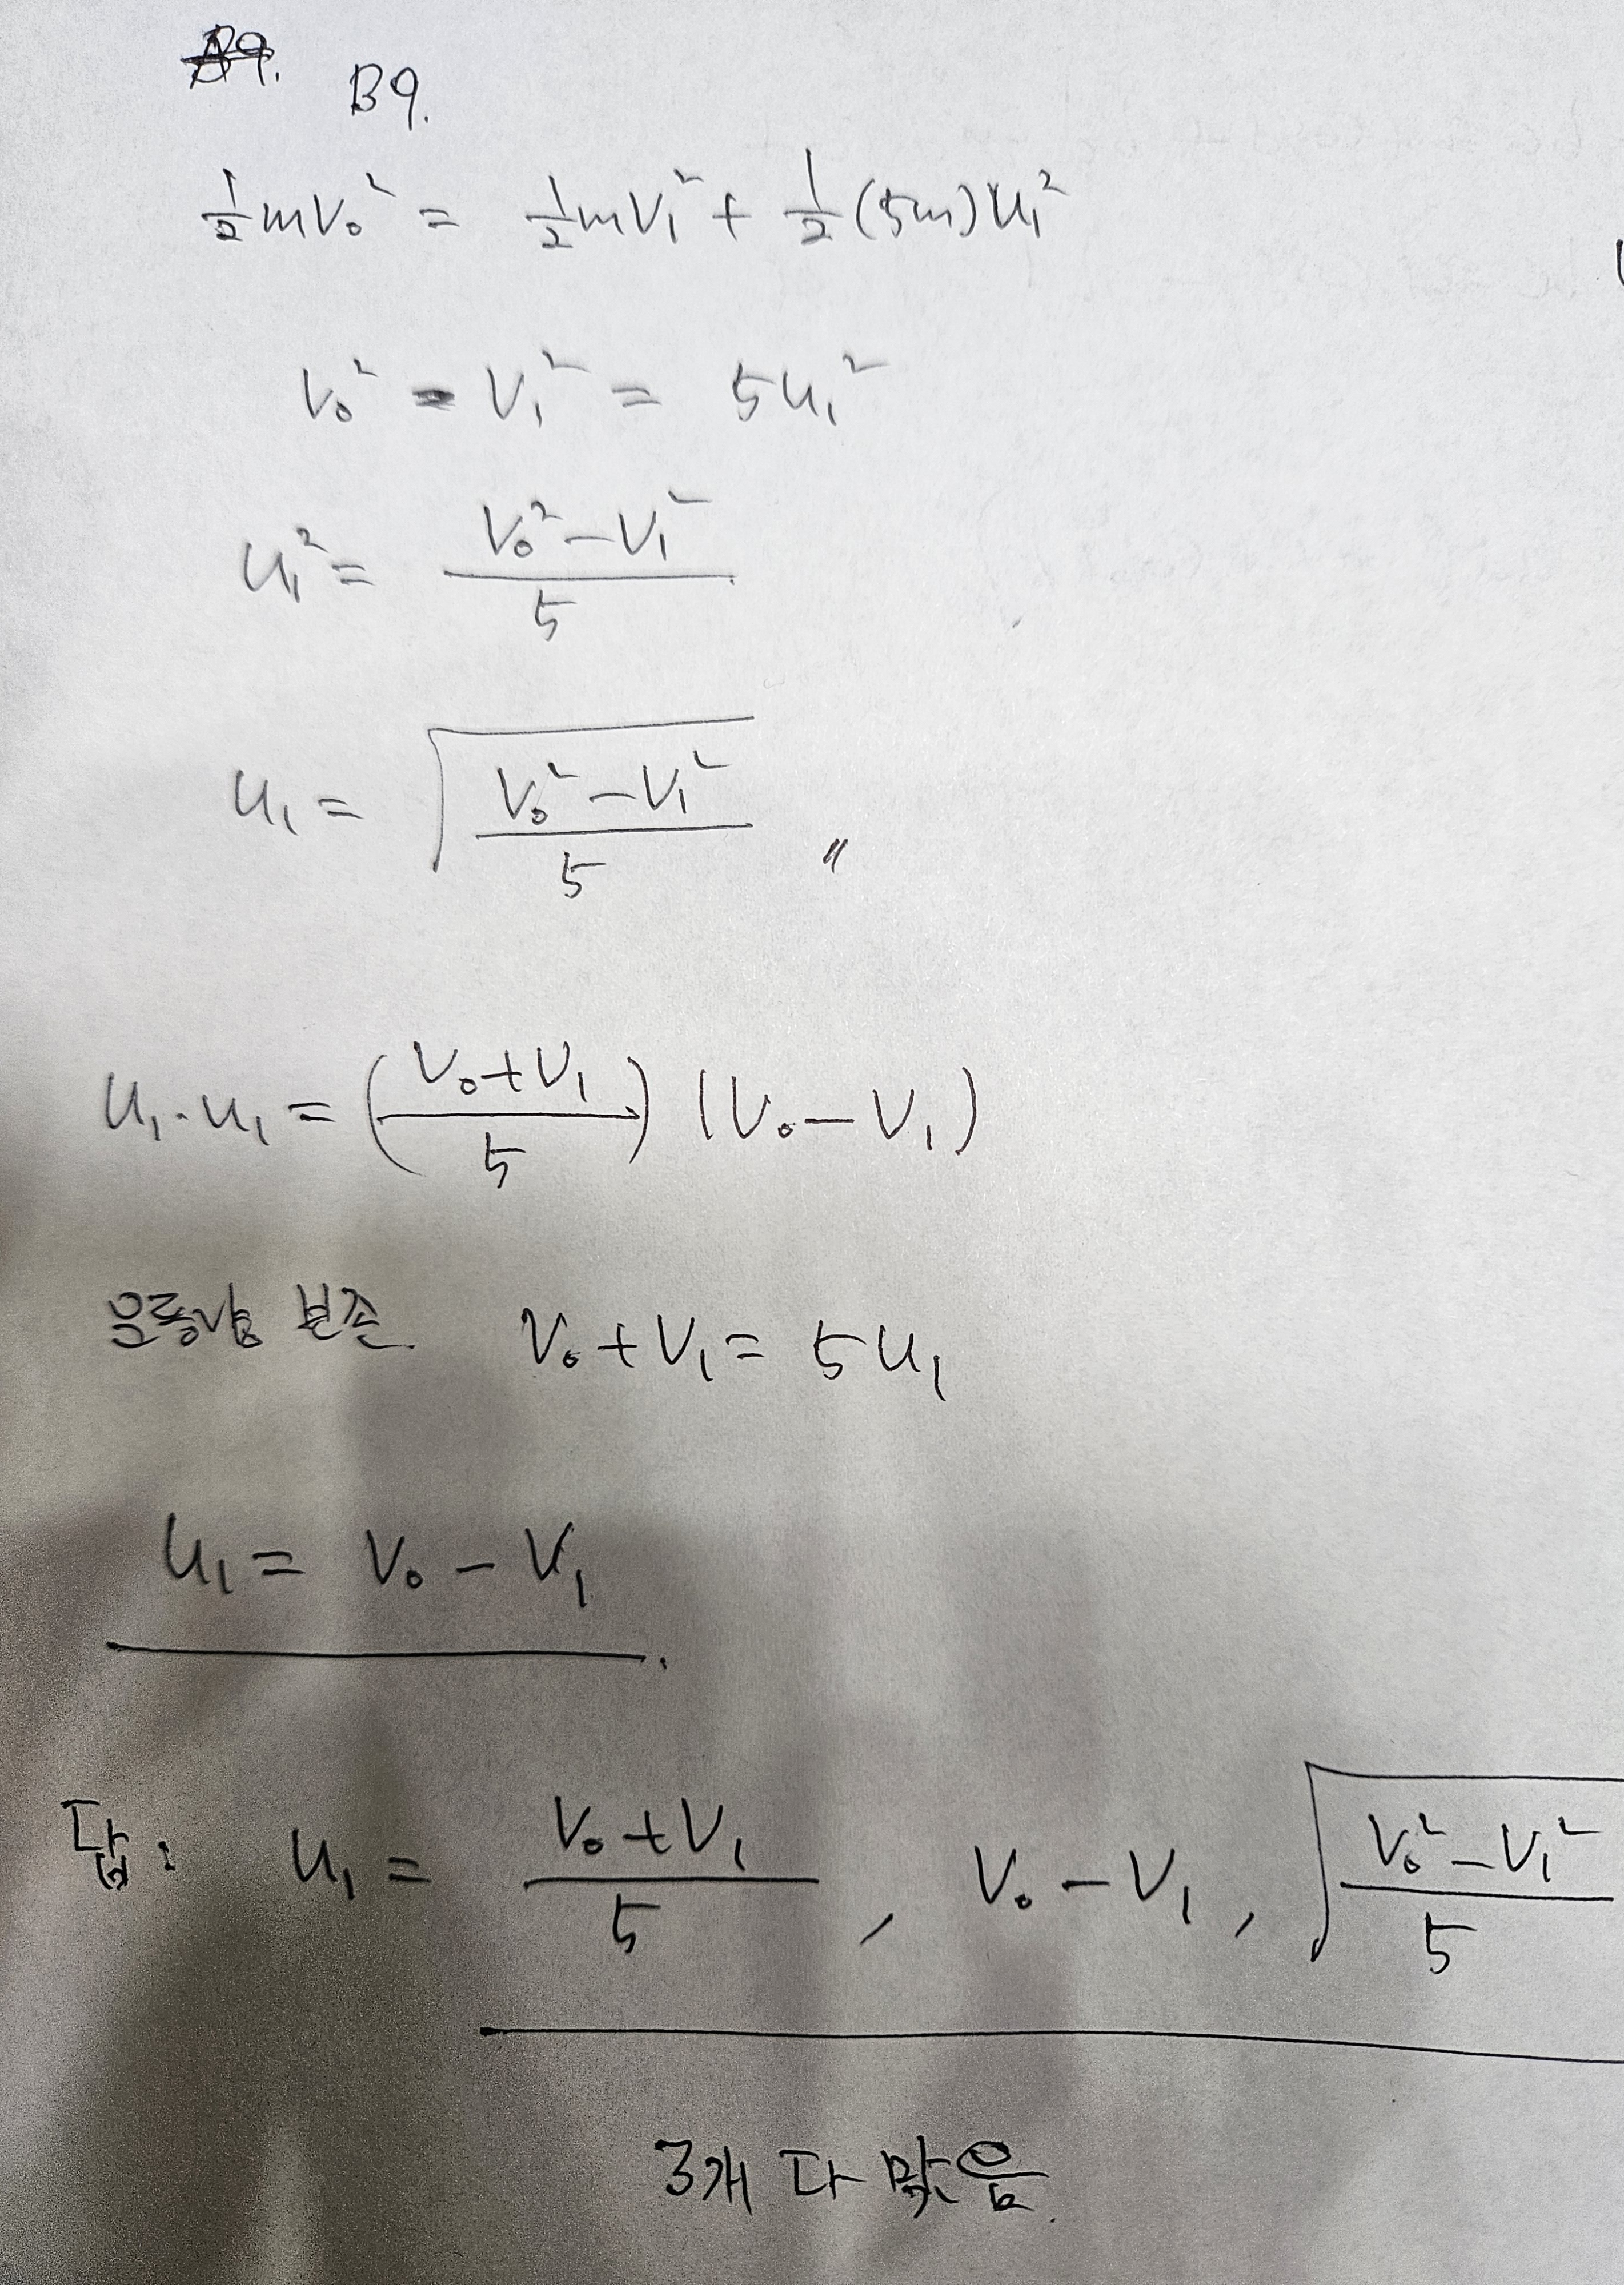 B9.
½mV₀² = ½mV₁² + ½(5m)u₁²
V₀² - V₁² = 5u₁²
u₁² = (V₀² - V₁²)/5
u₁ = √((V₀² - V₁²)/5) 〃
u₁·u₁ = ((V₀+V₁)/5) (V₀ - V₁)
운동량 보존 V₀ + V₁ = 5u₁
u₁ = V₀ - V₁
답: u₁ = (V₀+V₁)/5 , V₀ - V₁ , √((V₀² - V₁²)/5)
3개 다 맞음.